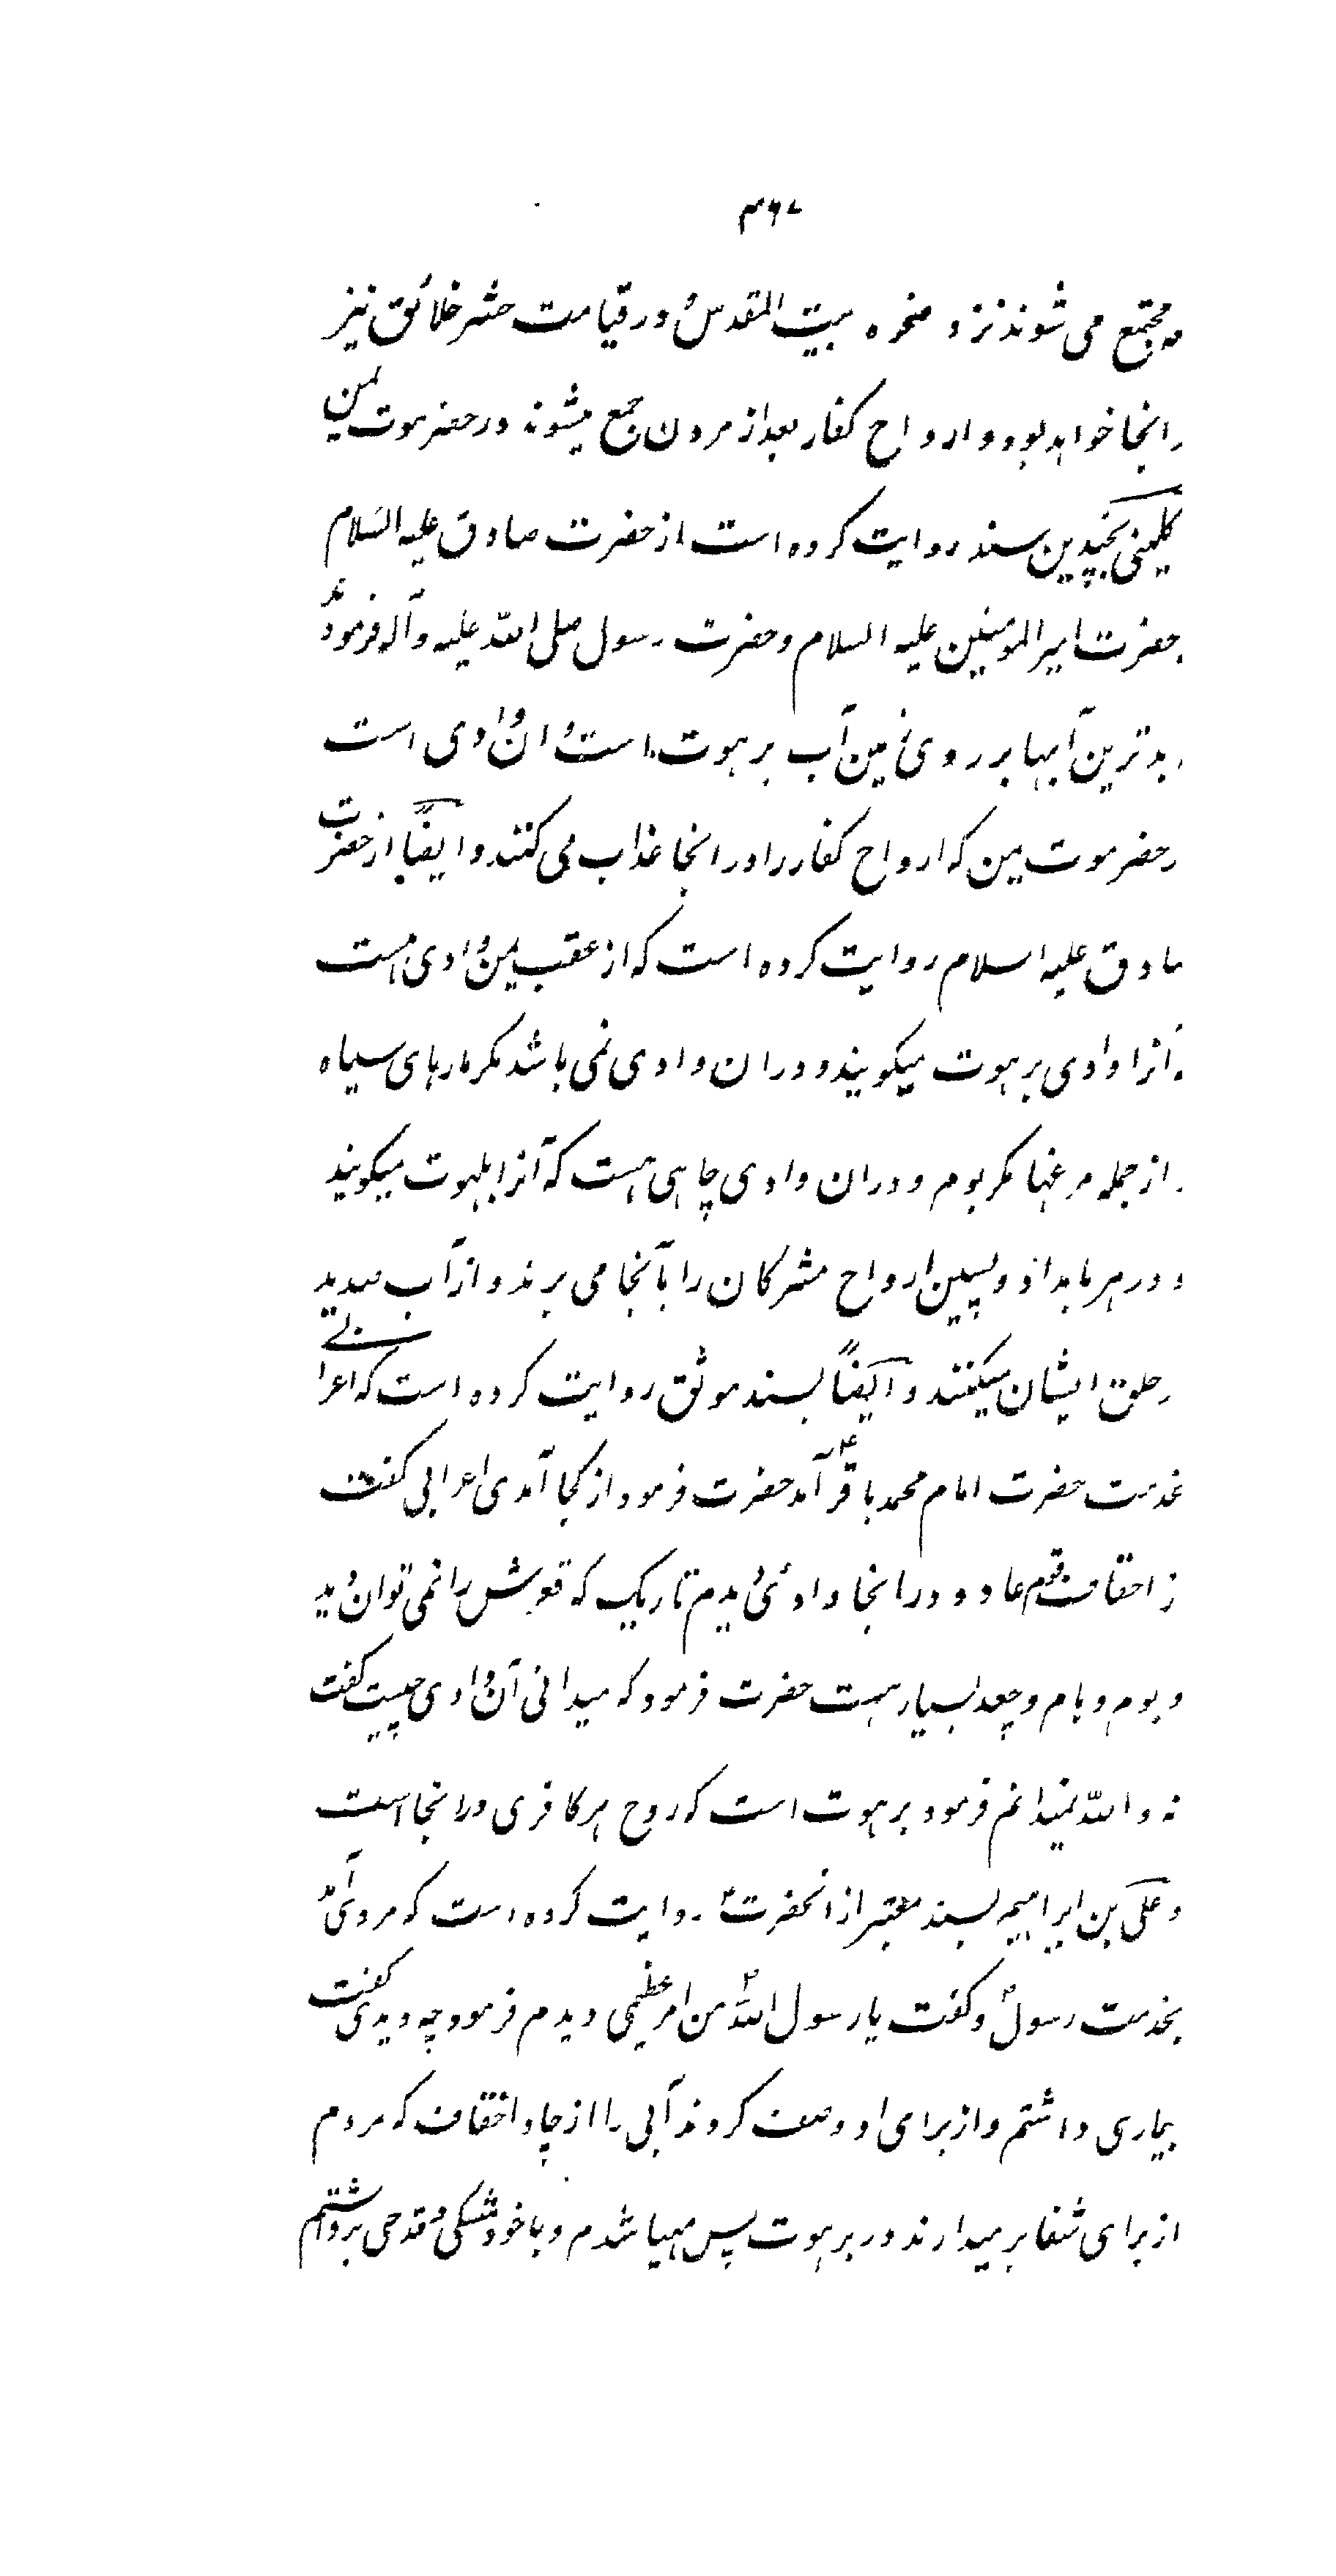 ۳۶۷
مجتمع می شوند نزد صخره بیت المقدس و در قیامت حشر خلائق نیز
در انجا خواهد بود و ارواح کفار بعد از مردن جمع میشوند در حضرموت یمن
کلینی بچندین سند روایت کرده است از حضرت صادق علیه السلام
حضرت امیر المومنین علیه السلام و حضرت رسول صلی الله علیه و آله فرمودند
بدترین آبها بر روی زمین آب برهوت است و ان وادی است
در حضرموت یمن که ارواح کفار را در انجا عذاب می کنند و ایضًا از حضرت
صادق علیه اسلام روایت کرده است که از عقب یمن وادی هست
آنرا وادی برهوت میکویند و دران وادی نمی باشد مکر مارهای سیاه
از جمله مرغها مکر بوم و دران وادی چاهی هست که آنرا بلهوت میکویند
و در هر بامداد و پسین ارواح مشرکان را بآنجا می برند و از آب صدید
در حلق ایشان میکنند و ایضًا بسند موثق روایت کرده است که اعرابی
بخدمت حضرت امام محمد باقر ع آمد حضرت فرمود از کجا آمدی اعرابی کفت
از احقاف قوم عاد و در انجا وادئی دیدم تاریک که قعرش را نمی توان دید
و بوم و هام و جعد بسیار هست حضرت فرمود که میدانی آن وادی چیست کفت
نه والله نمیدانم فرمود برهوت است که روح هر کافری در انجا است
و علی بن ابراهیم بسند معتبر از انحضرت روایت کرده است که مردی آمد
بخدمت رسول و کفت یا رسول الله من امر عظیمی دیدم فرمود چه دیدی کفت
بیماری داشتم و از برای او وصف کردند آبی را از چاه احقاف که مردم
از برای شفا بر میدارند در برهوت پس مهیا شدم و با خود مشکی و قدحی برداشتم